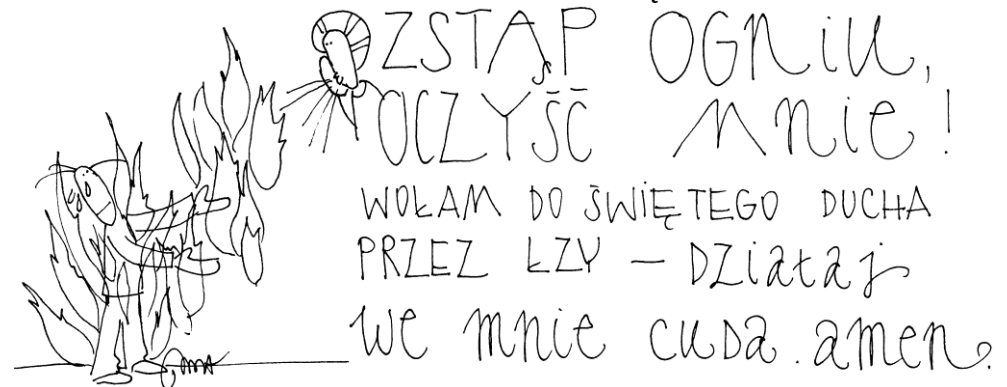 ZSTĄP OGNIU,
OCZYŚĆ mnie!
WOŁAM DO ŚWIĘTEGO DUCHA
PRZEZ ŁZY – DZiałaj
we mnie cuda. amen.